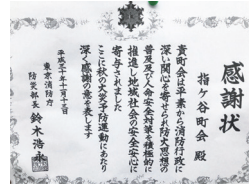 感謝状
指ケ谷町会 殿
貴町会は平素から消防行政に
深い関心を寄せられ防火思想の
普及及び人命安全対策を積極的に
推進し地域社会の安全安心に
寄与されました
ここに秋の火災予防運動にあたり
深く感謝の意を表します
平成三十年十月十二日
東京消防庁
防災部長 鈴木浩永